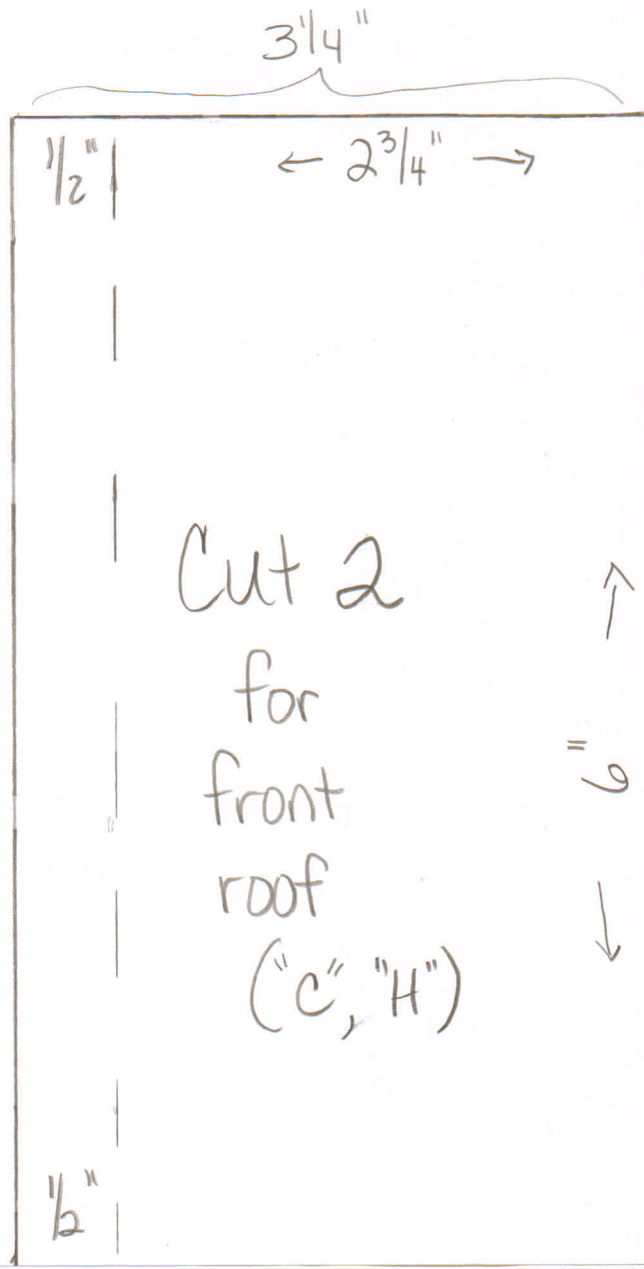 3 1/4"
1/2"
← 2 3/4" →
Cut 2
for
front
roof
("C", "H")
← 6" →
1/2"